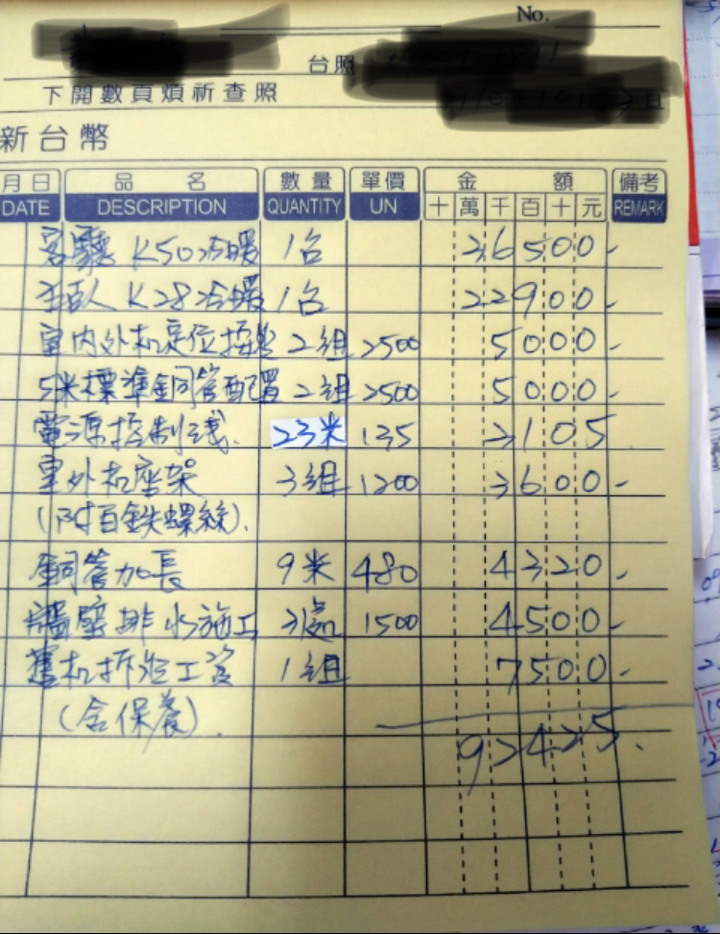 No.
台照
下開數頁煩祈查照
新台幣
月日 品名 數量 單價 金額 備考
DATE DESCRIPTION QUANTITY UN 十 萬 千 百 十 元 REMARK
客廳 K50冷暖 1台 36500-
主臥 K28冷暖 1台 22900-
室内外机定位 2組 2500 5000-
5米標準銅管配置 2組 2500 5000-
電源控制线. 23米 135 3105
室外机座架 3組 1200 3600-
(附白鉄螺絲).
銅管加長 9米 480 4320-
牆壁排水施工 3處 1500 4500-
舊机拆 工資 1組 7500-
(含保養).
92425.